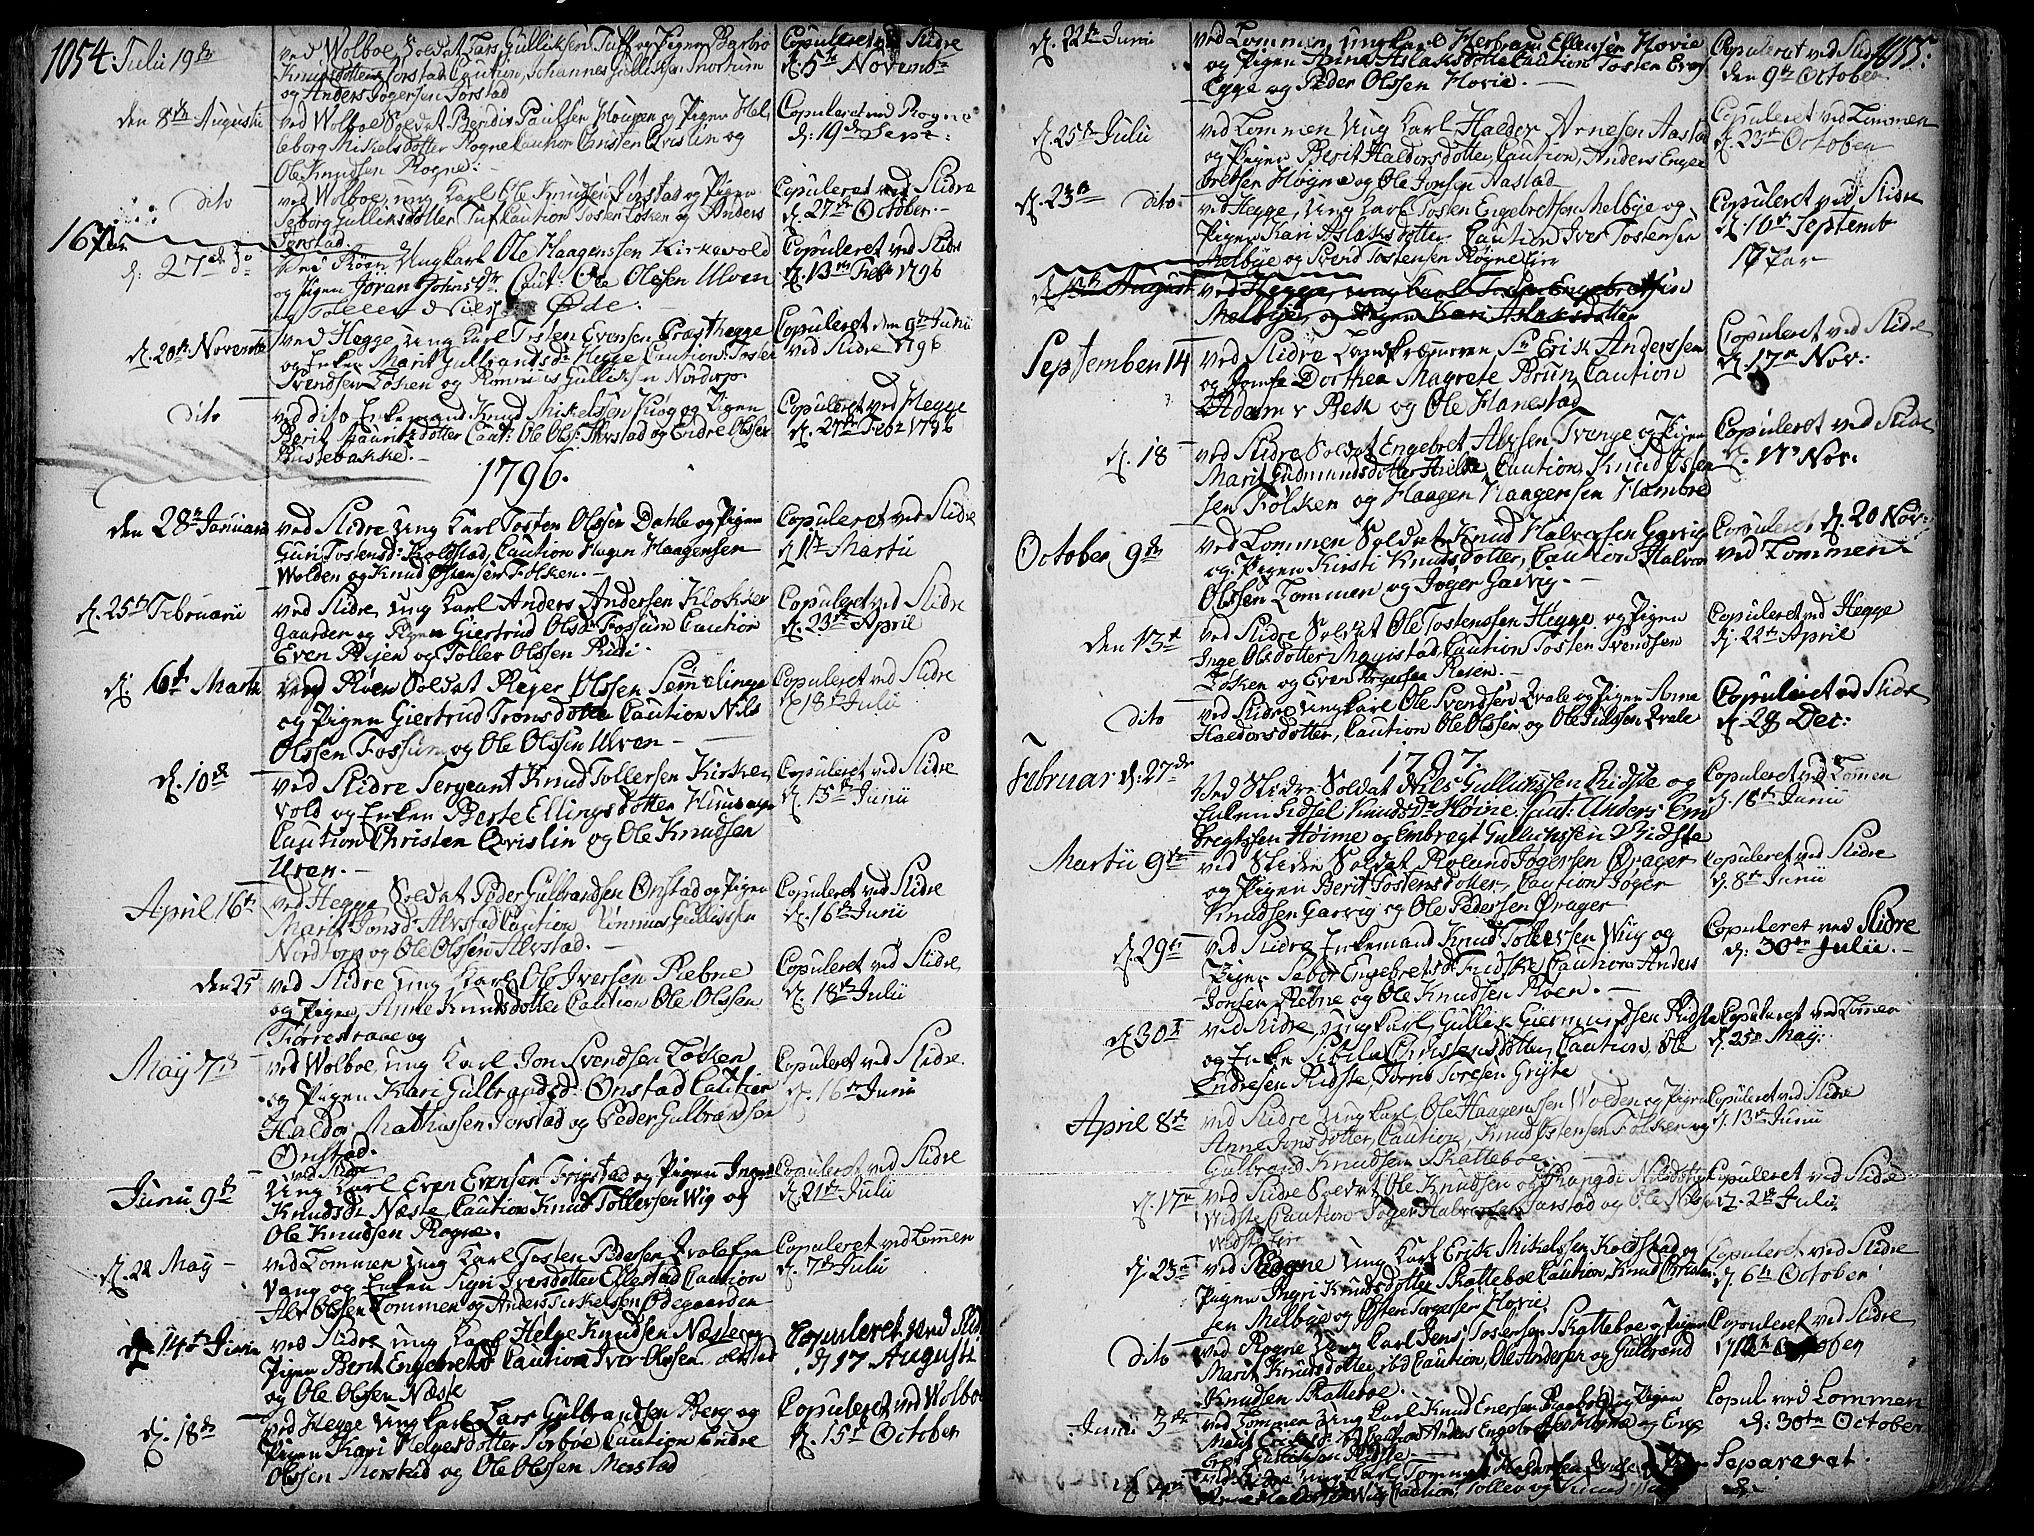 1054.
Julii 19de
ved Wolboe, Soldat Lars Gulliksen Tuff og Pigen Barbro
Knudsdotter Jorstad Caution, Johannes Gulliksen
og Anders Jogersen Jorstad
Copuleret ved Slidre
d. 5te Novemb
den 8de Augustii
ved Wolboe Soldat Bendix Paulsen Hougen og Pigen Hel-
leborg Mikelsdotter Rogne Caution Christen Qvislin og
Ole Knudsen Rogne.
Copuleret ved Rogne
d. 19de Sept:
dito
ved Wolboe, ung Karl Ole Knudsen Jorstad og Pigen
Seborg Gulliksdotter Tuf Caution Tosten Losken og Anders
Jorstad
Copuleret ved Slidre
d. 27de October.
16 Par
d. 27de do
Ved Røgn Ungkarl Ole Haagenssen Kirkevold
og Pigen Joran Johnsdr. Caut: Ole Olssen Ulven
og Tollev Øde.
Copuleret ved Slidre
d. 13de Feb. 1796
d. 20de Novemb
ved Hegge, Ung Karl Tosten Evensen Præsthegge
og Enken Marit Gulbrandsd: Hegge Caution: Tosten
Svendsen Losken og Rommis Gulliksen Nordorp.
Copuleret den 9de Junii
ved Slidre 1796
dito
ved dito Enkemand Knud Mikelssen Skog og Pigen
Berit Lauritzdotter Caut: Ole Ols: Alvstad og Endre Olssen
Bussebakke.
Copuleret ved Hegge
d. 27de Febr 1796
1796.
den 28de Januarii
ved Slidre Ung Karl Tosten Olssen Dahle og Pigen
Guri Tostensd: Koldstad, Caution Hagen Haagensen
Wolden og Knud Østensen Folken.
Copuleret ved Slidre
d. 1te Martii
d. 25de Februarii
ved Slidre, Ung Karl Anders Andersen Klokker
Gaarden og Pigen Giertrud Olsdr. Fossum Caution
Even Reien og Toller Olssen Rudi.
Copuleret ved Slidre
d. 23de April
d. 6te Martii
ved Røen Soldat Reier Olssen Semelinge
og Pigen Giertrud Tronsdotter Caution Nils
Olssen Fossum og Ole Olssen Ulven
Copuleret ved Slidre
d. 18de Julii
d. 10de
ved Slidre Sergeant Knud Tollersen Kirke
vold og Enken Berte Ellingsdotter
Caution Christen Qvislin og Ole Knudsen
Uren.
Copuleret ved Slidre
d. 15de Junii
April 16de
ved Hegge Soldat Peder Gulbrandsen Onstad og Pigen
Marit Jonsd. Alvstad Caution Rimmus Gullicsen
Nordtorp og Ole Olssen Alvstad.
Copuleret ved Slidre
d. 16de Junii
den 25
ved Slidre Ung Karl Ole Iversen Rebne
og Pigen Anne Knudsdotter Caution Ole Olssen
og
Copuleret ved Slidre
d. 18de Julii
May 7de
ved Wolboe, Ung Karl Jon Svendsen Losken
og Pigen Kari Gulbrandsd: Onstad Caution
Haldor Mathissen Jorstad og Peder Gulbrandsen
Onstad.
Copuleret ved Slidre
d. 16de Junii
Junii 9de
ved Slidre
Ung Karl Even Evensen Frigstad og Pigen
Knudsd. Næste, Caution Knud Tollersen Wig og
Ole Knudsen Rogne.
Copuleret ved Slidre
d. 21de Julii
d. 22 May
ved Lommen Ung Karl Tosten Pedersen Qvale fra
Vang og Enken Sigri Iversdotter Ellestad Caution
Alv Olsen Lommen og Anders Tirkelsen Ødegaarden
Copuleret ved Lommen
d. 7de Julii
d. 14de Junii
ved Slidre, Ung Karl Helge Knudsen Næste og
Pigen Berit Engebretsd Caution Iver Olssen
og Ole Olssen Næste
Copuleret ved Slid.
d. 17 Augusti
d. 18de
ved Hegge Ung Karl Lars Gulbrandsen Berg og
Pigen Kari Helgesdotter Caution Endre
Olssen Morstad og Ole Olssen Morstad
Copuleret ved Wolboe
d. 15de October
1055.
d. 22de Junii
ved Lommen Ung Karl Herbran Ellensen Hovie
og Pigen Anne Aslaksdotter Caution Tosten Evens
Egge og Peder Olssen Hovie.
Copuleret ved Slidre
den 9de October
d. 25de Julii
ved Lommen Ung Karl Haldor Arnesen Aastad
og Pigen Berit Haldorsdotter, Caution, Anders Enge
bretsen Høyne og Ole Jonsen Aastad
Copuleret ved Lommen
d. 23de October
d. 23de dito
ved Hegge, Ung Karl Tosten Engebretsen Melbye og
Pigen Kari Aslaksdotter Caution Iver Tostensen
Melbye og Svend Tostensen Rogne
Copuleret ved Slidre
d. 10de Septemb
17 Par
August
ved Hegge, ung Karl Tosten Engebretsen
Melbye, og Pigen Kari Aslaksdotter
September 14
ved Slidre Landkræmmeren Sr Erik Anderssen
og Jomfr Dorthea Magrete Brun, Caution
Adam v Beck og Ole Hanestad
Copuleret ved Slidre
d. 17de Nov:
d. 18
ved Slidre Soldat Engebret Alvsen Tvenge og Pigen
Marit Gudmundsdotter Caution Knud Østen
sen Folken og Haagen Haagensen Hambre
Copuleret ved Slidre
d. 17de Nov:
October 9de
ved Lommen Soldat Knud Halvorsen Garvig
og Pigen Kirsti Knudsdotter, Caution Halvor
Olssen Lommen og Joger Garvig.
Copuleret d. 20 Nov:
ved Lommen
den 13de
ved Slidre Soldat Ole Tostenssen Hegge og Pigen
Inge Olsdotter Magistad Caution Tosten Svendsen
Losken og Even Jorgensen Reien.
Copuleret ved Hegge
d. 22de April
dito
ved Slidre Ungkarl Ole Svendsen Qvale og Pigen Anne
Haldorsdotter, Caution Ole Olssen og Ole Julssen Qvale
Copuleret ved Slidre
d. 28 Dec:
1797.
Februar d. 27de
Ved Slidre Soldat Nils Gullichssen Ridste og
Enken Sidsel Knudsdr. Høine. Caut. Anders Em
bregtsen Høime og Embregt Gullichssen Ridste
Copuleret ved Lommen
d. 18de Junii
Martii 9de
ved Slidre Soldat Roland Jogersen Qvager
og Pigen Berit Tostensdotter, Caution Joger
Knudsen Garvig og Ole Pedersen Qvager
Copuleret ved Slidre
d. 8de Junii
d. 29de
ved Slidre Enkemand Knud Tollefsen Wiig og
Pigen Sebor Engebretsd. Fridske, Caution Anders
Jonsen Rebne og Ole Knudsen Roen.
Copuleret ved Slidre
d. 30de Julii.
d. 30te
ved Slidre Ungkarl Gullik Giermundsen Ridste
og Enke Sibille Christensdotter, Caution, Ole
Endresen Ridste, Torno Toresen Griste
Copuleret ved Lommen
d. 25de May.
April 8de
ved Slidre Ung karl Ole Haagenssen Wolden og Pigen
Anne Jonsdotter, Caution, Knud Østensen Folken og
Gulbrand Knudsen Skatteboe.
Copuleret ved Slidre
d. 13de Junii
d. 17de
ved Slidre Soldat Ole Knudsen og Rangdi Nilsdotter
Widste Caution Joger Halvorsen Jarstad og Ole Nilsen
Widste
Copuleret ved Slidre
d. 2de Julii
d. 23de
ved Rogne Ung Karl Erik Mikelssen Koldstad og
Pigen Ingri Knudsdotter Skatteboe Caution, Knud Christen
sen Melbye og Østen Jorgesen Hovie.
Copuleret ved Slidre
d. 6te October
Dito
ved Rogne Ung Karl Jens Tostensen Skatteboe og Pigen
Marit Knudsdotter ibd Caution, Ole Andersen og Gulbrand
Knudsen Skatteboe.
Copuleret ved Slidre
d. 12te October
Junii 3de
ved Lommen Ung Karl Knud Enersen og Pigen
Marit Ericksd: Caution Anders Engebretsen Høyne og Enge
bret Gulliksen Ridste
Copul ved Lommen
d. 30te October
d. 4de
ved Slidre Ung Karl Tommas Haldorsen Qvale og Pigen
Wiig Caution, Tollev og Knud
Separerat.